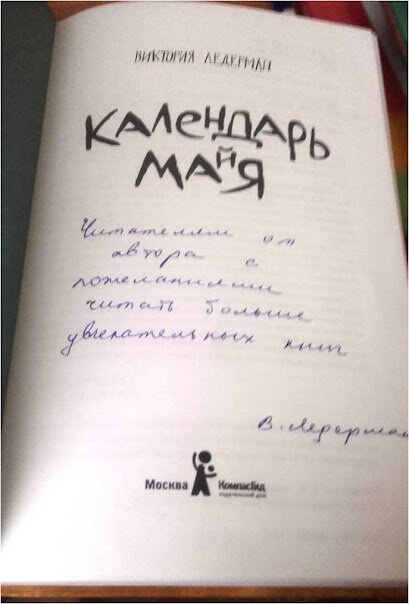 ВИКТОРИЯ ЛЕДЕРМАН
КАЛЕНДАРЬ
МАЙЯ
Читателям от
автора с
пожеланиями
читать больше
увлекательных книг
В. Ледерман
Москва КомпасГид
издательский дом